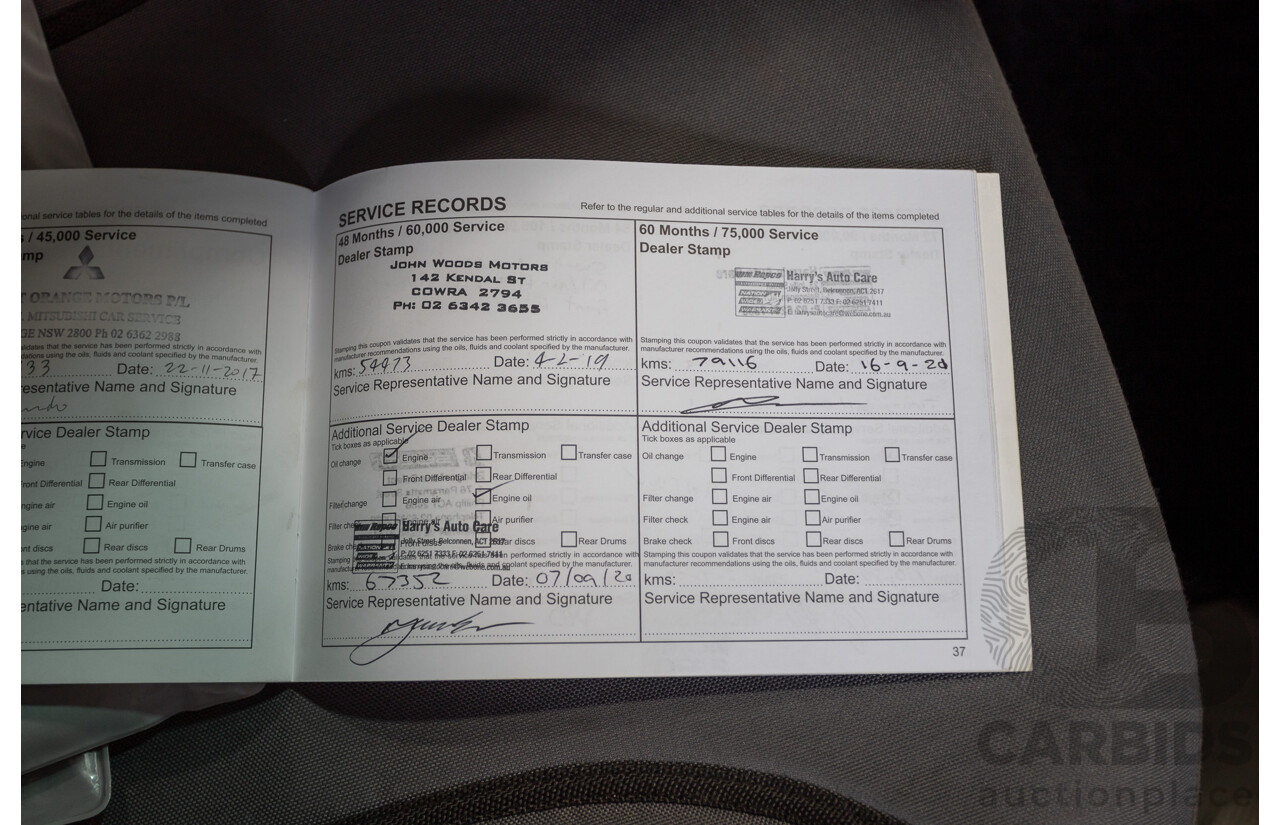 onal service tables for the details of the items completed
/ 45,000 Service
mp
ORANGE MOTORS P/L
MITSUBISHI CAR SERVICE
GE NSW 2800 Ph 02 6362 2988
idates that the service has been performed strictly in accordance with
dations using the oils, fluids and coolant specified by the manufacturer.
33 Date: 22-11-2017
esentative Name and Signature
rvice Dealer Stamp
Engine Transmission Transfer case
ront Differential Rear Differential
ngine air Engine oil
ngine air Air purifier
nt discs Rear discs Rear Drums
that the service has been performed strictly in accordance with
using the oils, fluids and coolant specified by the manufacturer.
Date:
entative Name and Signature
SERVICE RECORDS
Refer to the regular and additional service tables for the details of the items completed
48 Months / 60,000 Service
Dealer Stamp
JOHN WOODS MOTORS
142 KENDAL ST
COWRA 2794
PH: 02 6342 3655
Stamping this coupon validates that the service has been performed strictly in accordance with
manufacturer recommendations using the oils, fluids and coolant specified by the manufacturer.
kms: 54473 Date: 4-2-19
Service Representative Name and Signature
Additional Service Dealer Stamp
Tick boxes as applicable
Oil change Engine Transmission Transfer case
Front Differential Rear Differential
Filter change Engine air Engine oil
Filter check Engine air Air purifier
Harry's Auto Care
Jolly Street, Belconnen, ACT 2617
Brake check Front discs Rear discs Rear Drums
P: 02 6251 7333 F: 02 6251 7411
kms: 67352 Date: 07/09/20
Service Representative Name and Signature
60 Months / 75,000 Service
Dealer Stamp
Repco Harry's Auto Care
Jolly Street, Belconnen, ACT 2617
P: 02 6251 7333 F: 02 6251 7411
Stamping this coupon validates that the service has been performed strictly in accordance with
manufacturer recommendations using the oils, fluids and coolant specified by the manufacturer.
kms: 79116 Date: 16-9-20
Service Representative Name and Signature
Additional Service Dealer Stamp
Tick boxes as applicable
Oil change Engine Transmission Transfer case
Front Differential Rear Differential
Filter change Engine air Engine oil
Filter check Engine air Air purifier
Brake check Front discs Rear discs Rear Drums
Stamping this coupon validates that the service has been performed strictly in accordance with
manufacturer recommendations using the oils, fluids and coolant specified by the manufacturer.
kms: Date:
Service Representative Name and Signature
37
CARBIDS
auctionplace